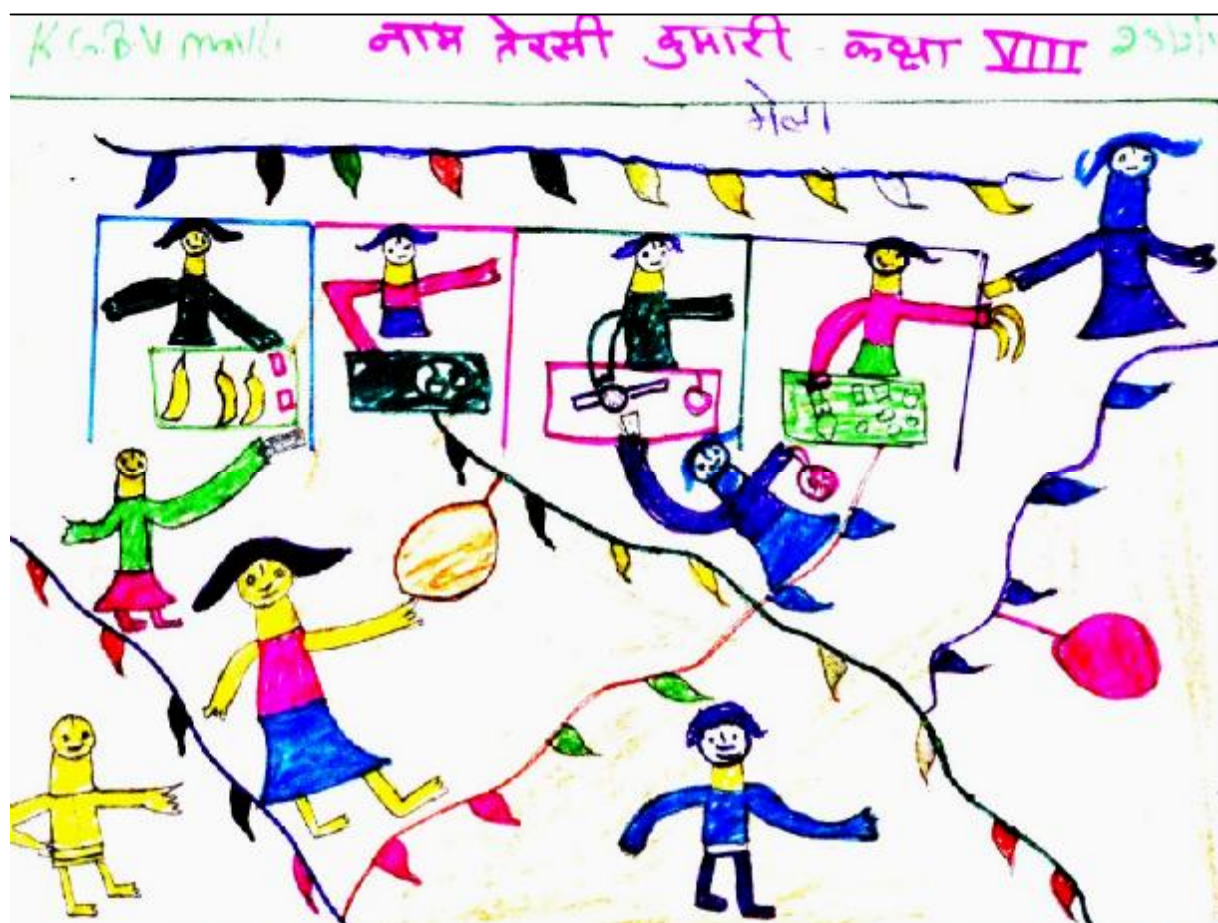 K.G.B.V नाम तेरसी कुमारी - कक्षा VIII
मेला